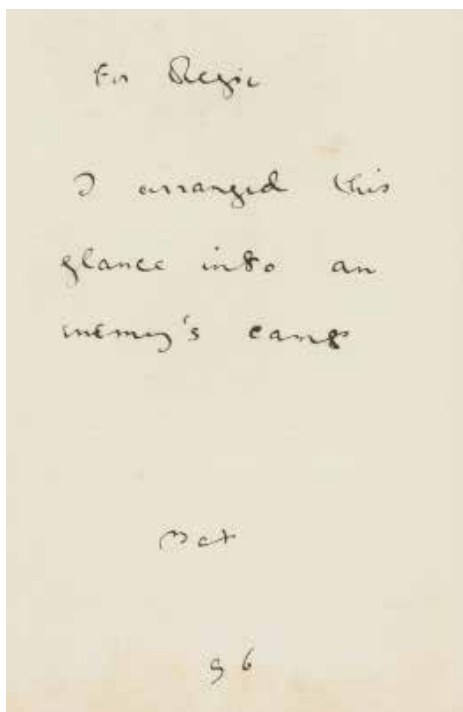 For Regie
I arranged this
glance into an
enemy's camp
96